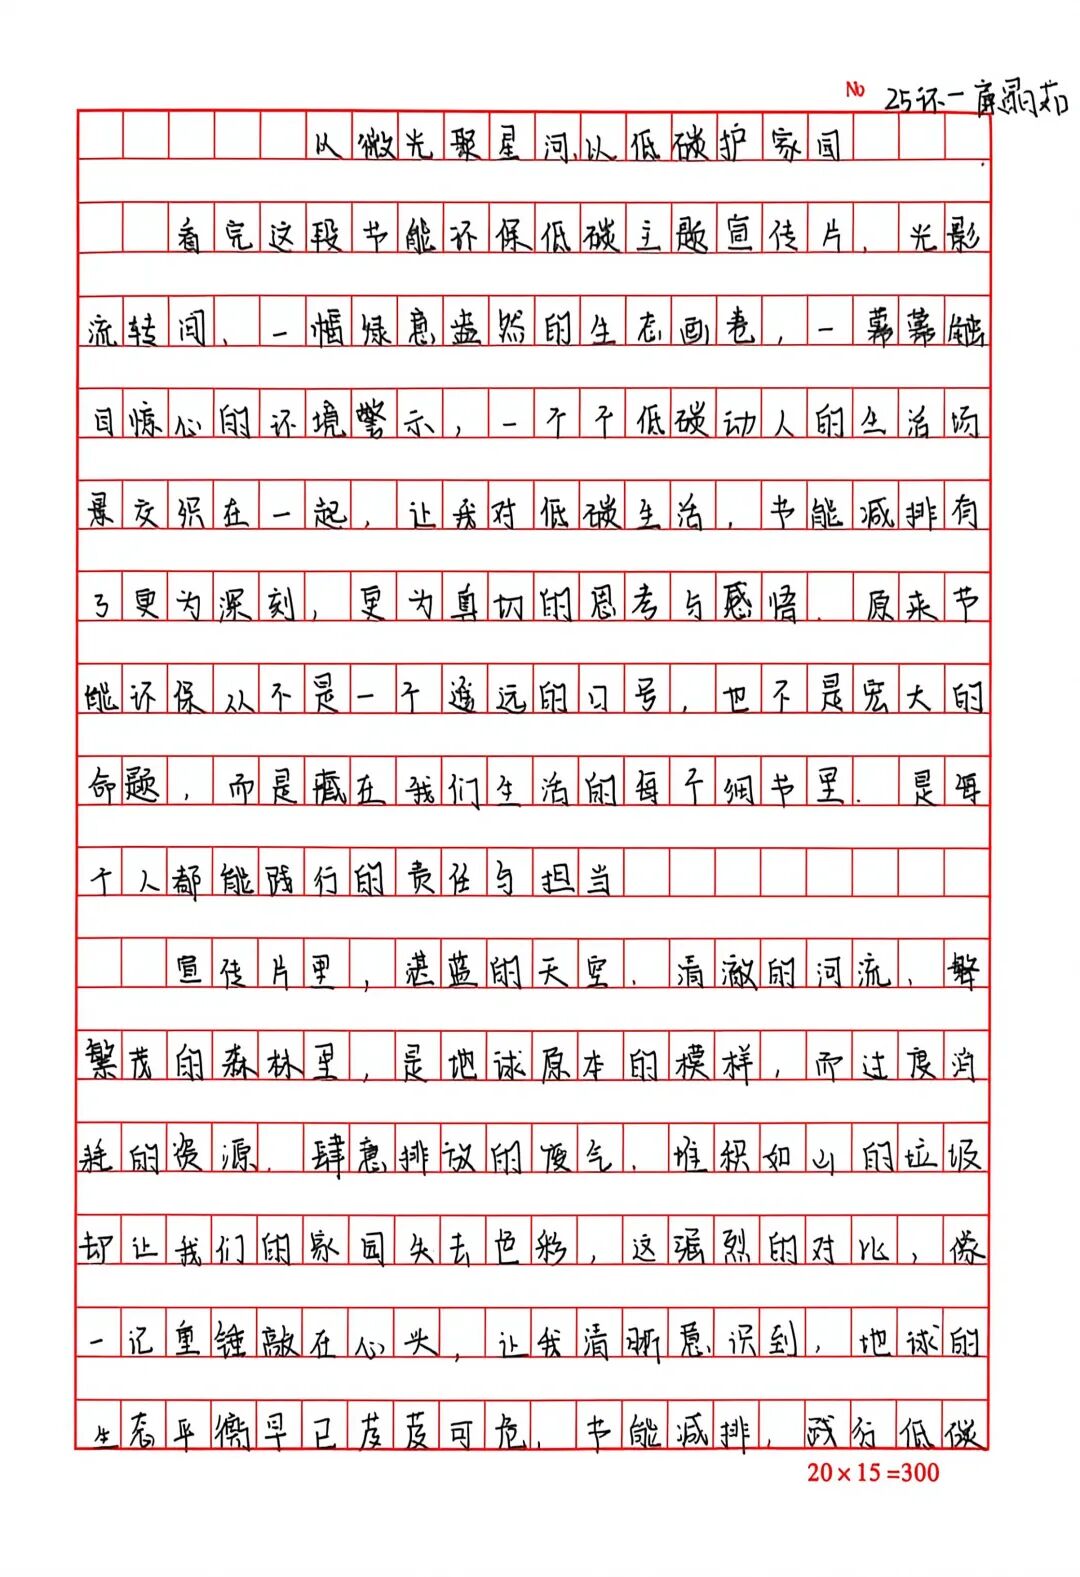 No 25环一
从微光聚星河,以低碳护家园
看完这段节能环保低碳主题宣传片、光影
流转间、一幅绿意盎然的生态画卷,一幕幕触
目惊心的环境警示,一个个低碳动人的生活场
景交织在一起,让我对低碳生活,节能减排有
了更为深刻,更为真切的思考与感悟.原来节
能环保从不是一个遥远的口号,也不是宏大的
命题,而是藏在我们生活的每个细节里.是每
个人都能践行的责任与担当
宣传片里,湛蓝的天空.清澈的河流、繁
繁茂的森林里,是地球原本的模样,而过度消
耗的资源.肆意排放的废气.堆积如山的垃圾
却让我们的家园失去色彩,这强烈的对比,像
一记重锤敲在心头,让我清晰意识到,地球的
生态平衡早已岌岌可危、节能减排,践行低碳
20×15=300